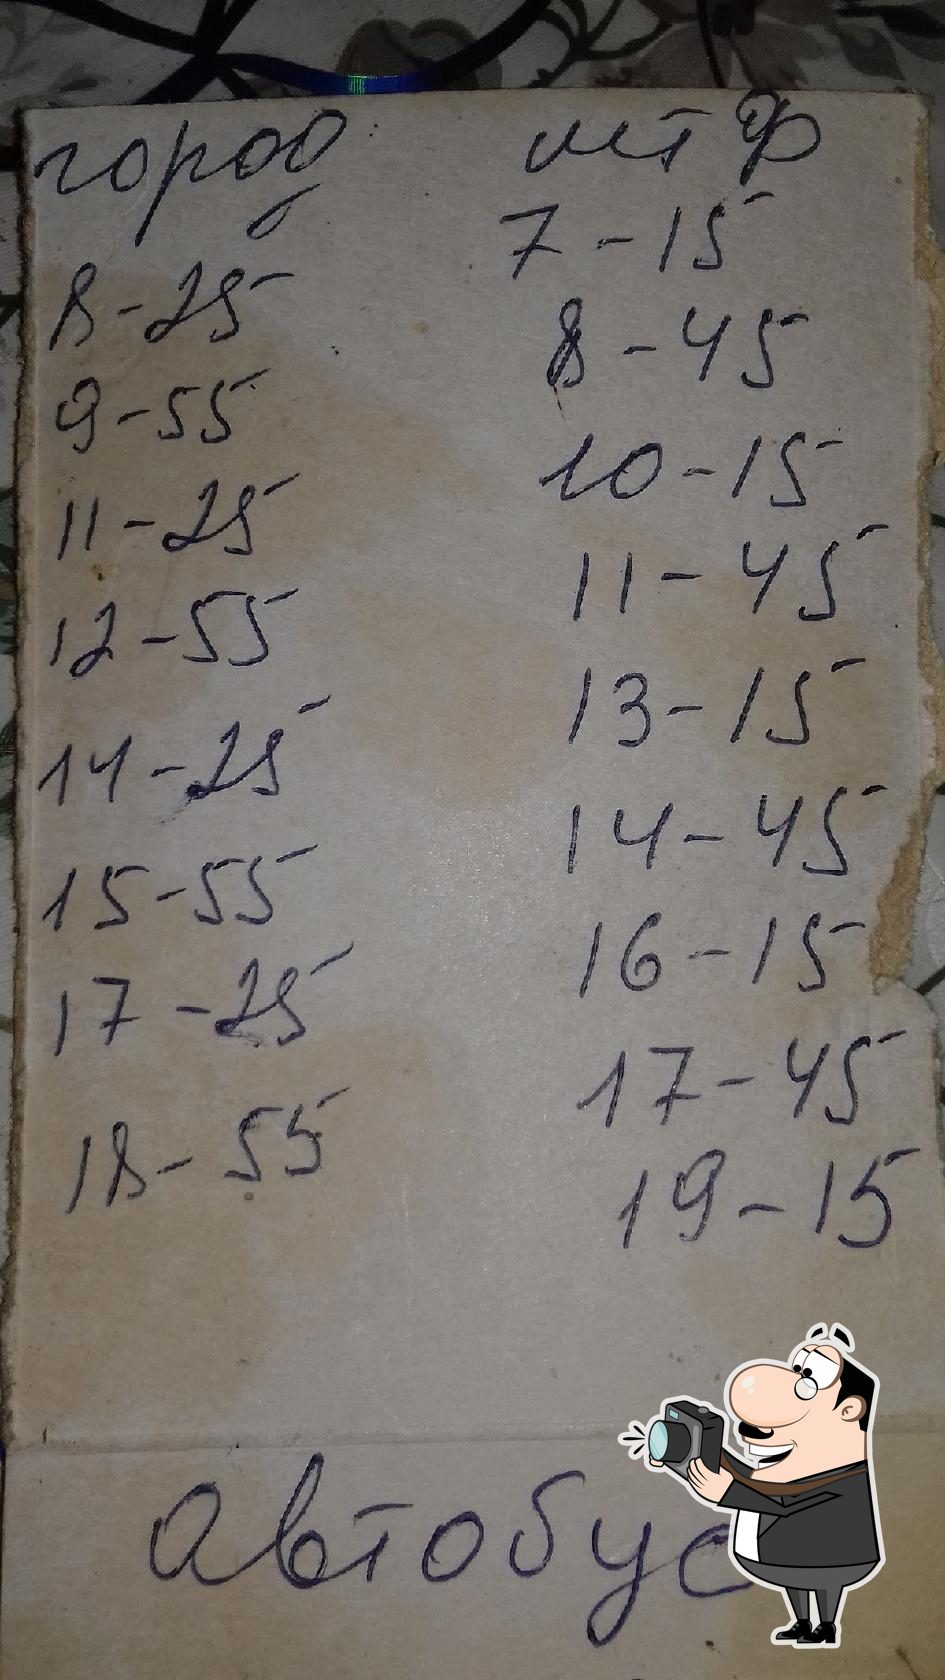 город мтф
7-15
8-25
8-45
9-55
10-15
11-25
11-45
12-55
13-15
14-25
14-45
15-55
16-15
17-25
17-45
18-55
19-15
автобус